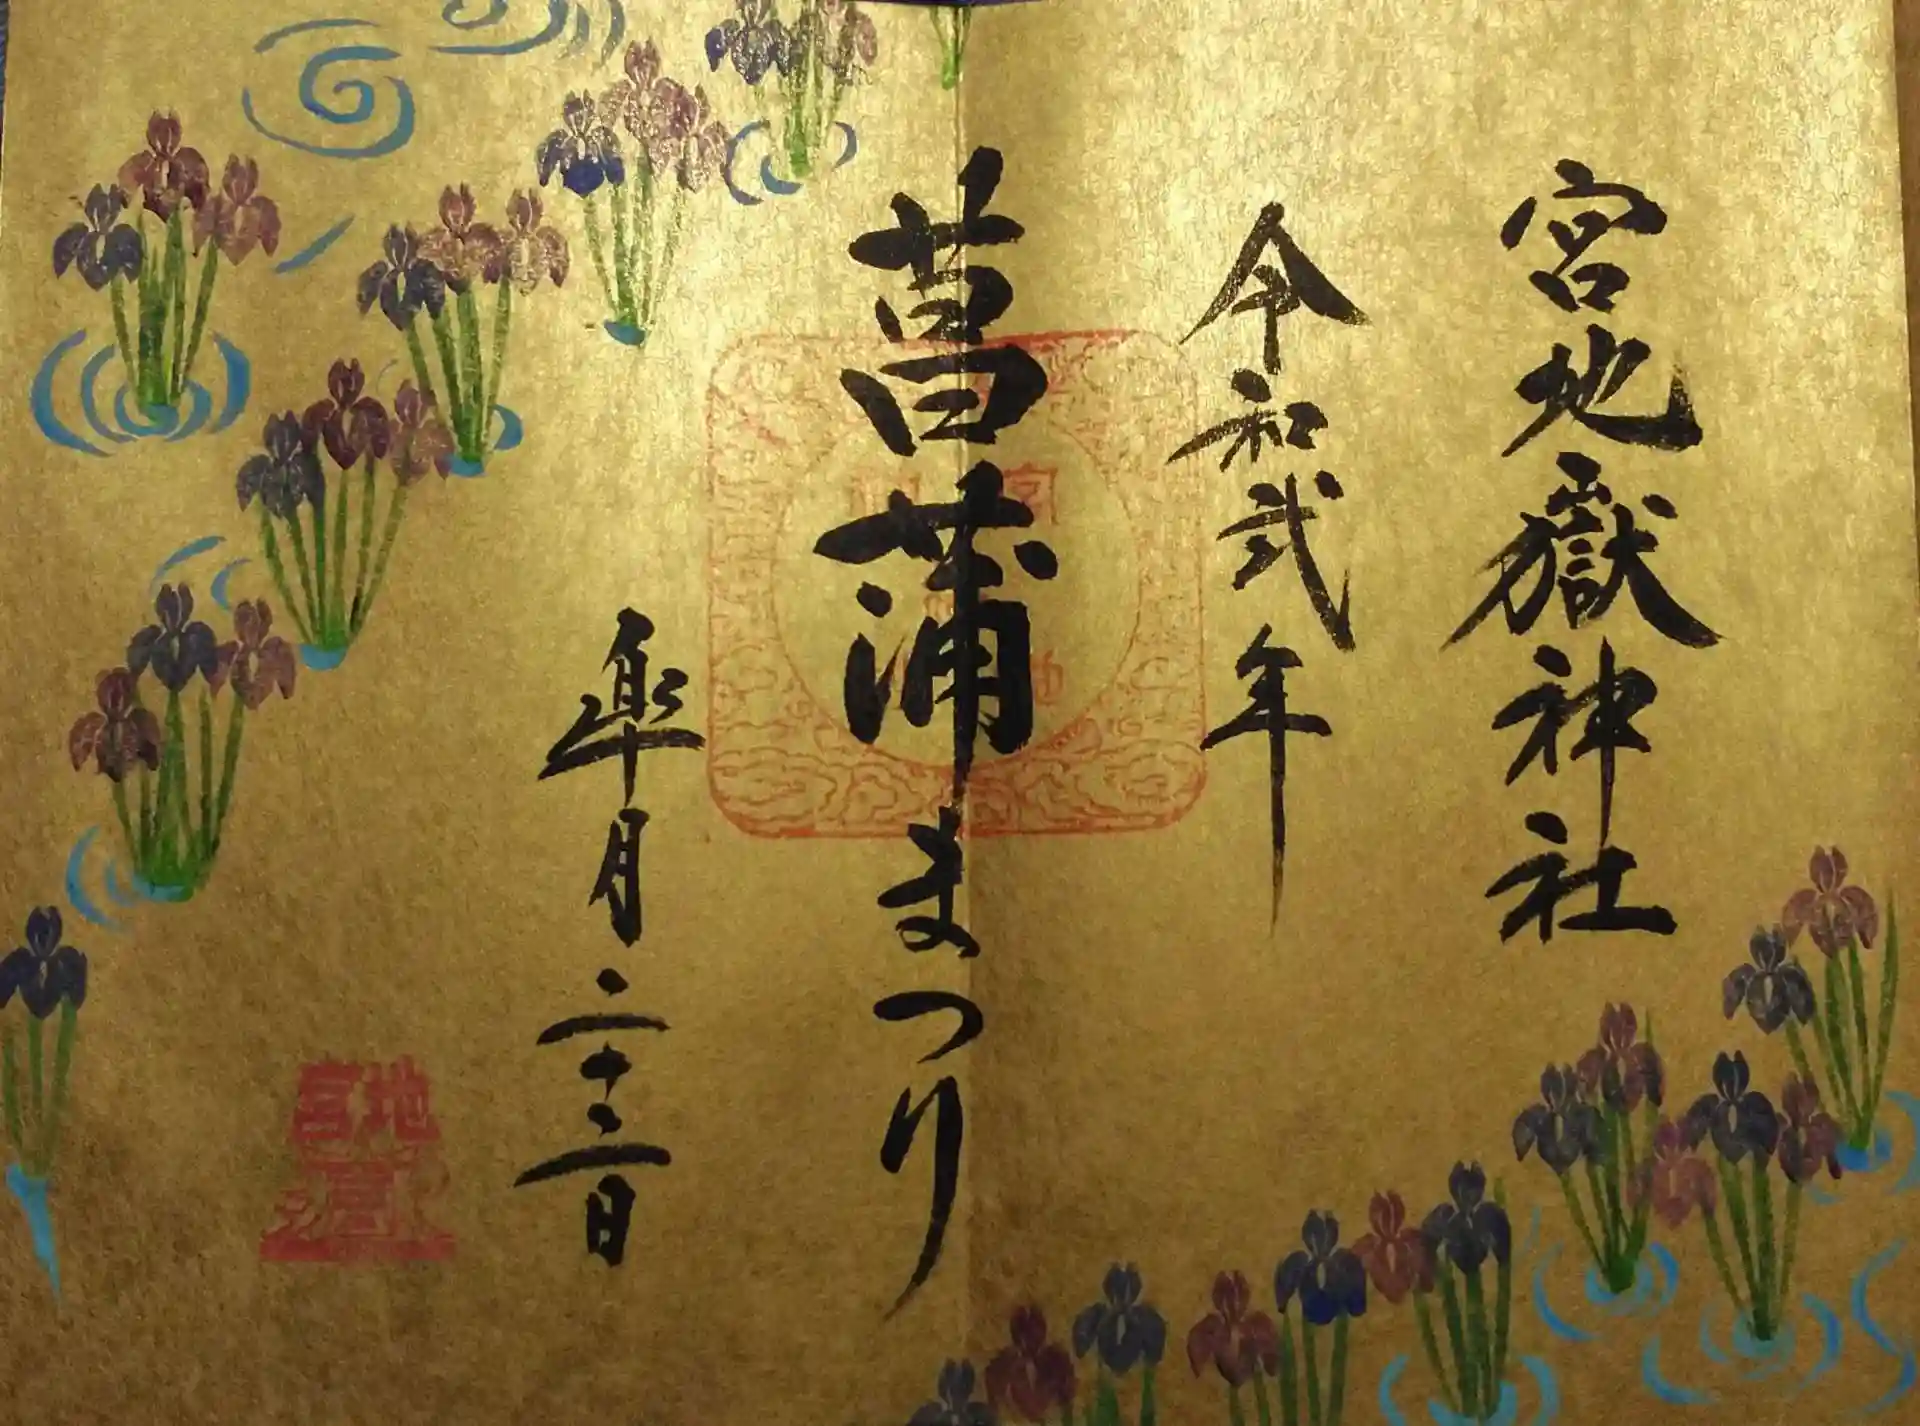 宮地嶽神社
令和弐年
菖蒲まつり
皐月二十三日
宮地